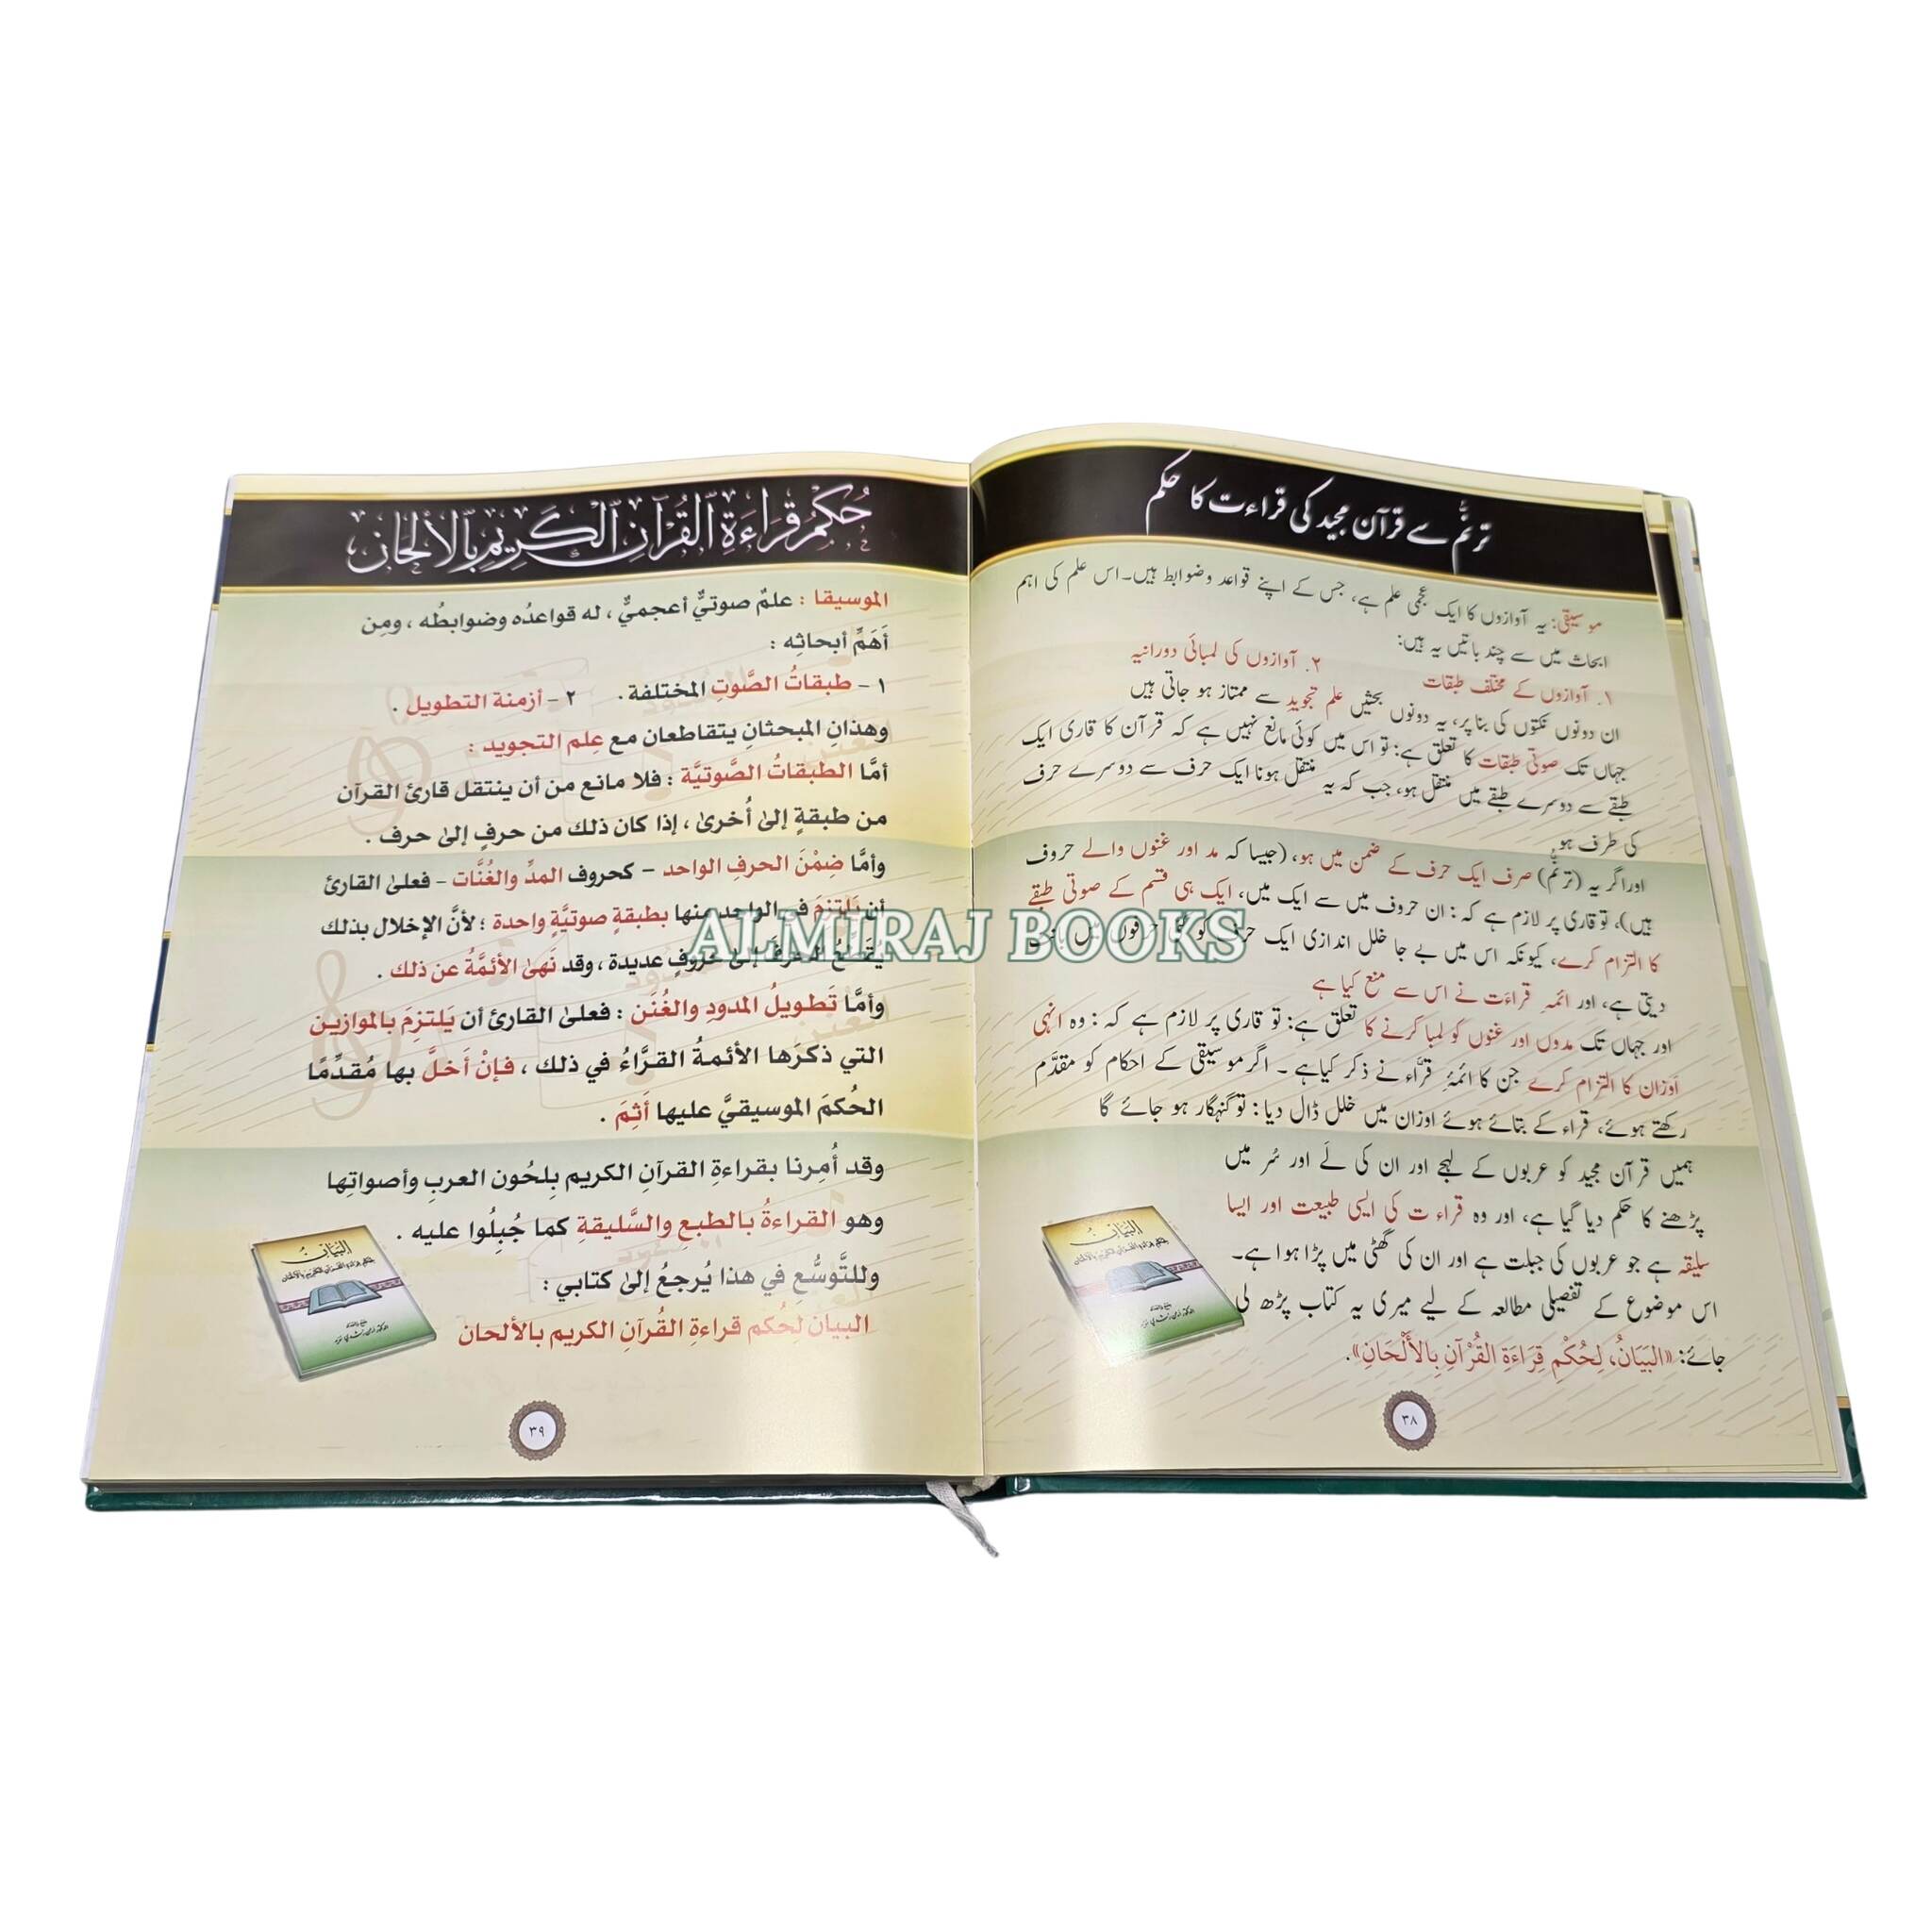 ترنّم سے قرآن مجید کی قراءت کا حکم
موسیقی: یہ آوازوں کا ایک عجمی علم ہے، جس کے اپنے قواعد وضوابط ہیں۔ اس علم کی اہم
ابحاث میں سے چند باتیں یہ ہیں:
۱. آوازوں کے مختلف طبقات ۲. آوازوں کی لمبائی دورانیہ
ان دونوں نکتوں کی بنا پر، یہ دونوں بحثیں علم تجوید سے ممتاز ہو جاتی ہیں
جہاں تک صوتی طبقات کا تعلق ہے: تو اس میں کوئی مانع نہیں ہے کہ قرآن کا قاری ایک
طبقے سے دوسرے طبقے میں منتقل ہو، جب کہ یہ منتقل ہونا ایک حرف سے دوسرے حرف
کی طرف ہو.
اور اگر یہ (ترنّم) صرف ایک حرف کے ضمن میں ہو، (جیسا کہ مد اور غنوں والے حروف
ہیں)، تو قاری پر لازم ہے کہ: ان حروف میں سے ایک میں، ایک ہی قسم کے صوتی طبقے
کا التزام کرے، کیونکہ اس میں بے جا خلل اندازی ایک حرف کو کئی حرفوں میں بانٹ
دیتی ہے، اور ائمہ قراءت نے اس سے منع کیا ہے
اور جہاں تک مدوں اور غنوں کو لمبا کرنے کا تعلق ہے: تو قاری پر لازم ہے کہ: وہ انہی
اوزان کا التزام کرے جن کا ائمۂ قرّاء نے ذکر کیا ہے ۔ اگر موسیقی کے احکام کو مقدّم
رکھتے ہوئے، قراء کے بتائے ہوئے اوزان میں خلل ڈال دیا: تو گنہگار ہو جائے گا
ہمیں قرآن مجید کو عربوں کے لہجے اور ان کی لَے اور سُر میں
پڑھنے کا حکم دیا گیا ہے، اور وہ قراءت کی ایسی طبیعت اور ایسا
سلیقہ ہے جو عربوں کی جبلت ہے اور ان کی گھٹی میں پڑا ہوا ہے۔
اس موضوع کے تفصیلی مطالعہ کے لیے میری یہ کتاب پڑھ لی
جائے: «البَيَانُ، لِحُكْمِ قِرَاءَةِ القُرْآنِ بِالأَلْحَانِ».
البيان
٣٨
حُكْمُ قِرَاءَةِ القُرْآنِ الكَرِيمِ بِالأَلحَانِ
الموسيقا : علمٌ صوتيٌّ أعجميٌّ ، له قواعدُه وضوابطُه ، ومِن
أَهَمِّ أبحاثِه :
١ - طبقاتُ الصَّوتِ المختلفة . ٢ - أزمنة التطويل .
وهذانِ المبحثانِ يتقاطعان مع عِلم التجويد :
أمَّا الطبقاتُ الصَّوتيَّة : فلا مانع من أن ينتقل قارئ القرآن
من طبقةٍ إلىٰ أُخرىٰ ، إذا كان ذلك من حرفٍ إلىٰ حرف .
وأمَّا ضِمْنَ الحرفِ الواحد - كحروف المدِّ والغُنَّات - فعلىٰ القارئ
أن يَلتزمَ في الواحد منها بطبقةٍ صوتيَّةٍ واحدة ؛ لأنَّ الإخلال بذلك
يُقَطِّعُ الحرفَ إلىٰ حروفٍ عديدة ، وقد نَهىٰ الأئمَّةُ عن ذلك .
وأمَّا تَطويلُ المدودِ والغُنَن : فعلىٰ القارئ أن يَلتزِمَ بالموازين
التي ذكرَها الأئمةُ القرَّاءُ في ذلك ، فإنْ أَخلَّ بها مُقدِّمًا
الحُكمَ الموسيقيَّ عليها أَثِمَ .
وقد أُمِرنا بقراءةِ القرآنِ الكريم بِلحُون العربِ وأصواتِها
وهو القراءةُ بالطبعِ والسَّليقةِ كما جُبِلُوا عليه .
وللتَّوسُّعِ في هذا يُرجعُ إلىٰ كتابي :
البيان لحُكم قراءةِ القُرآنِ الكريم بالألحان
البيان
٣٩
ALMIRAJ BOOKS